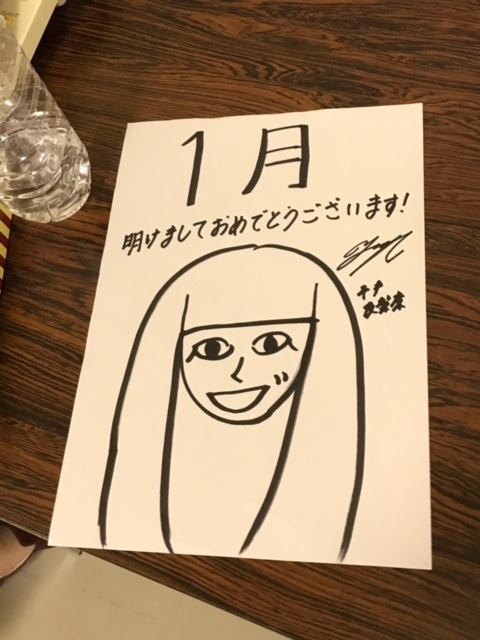 1月
明けましておめでとうございます!